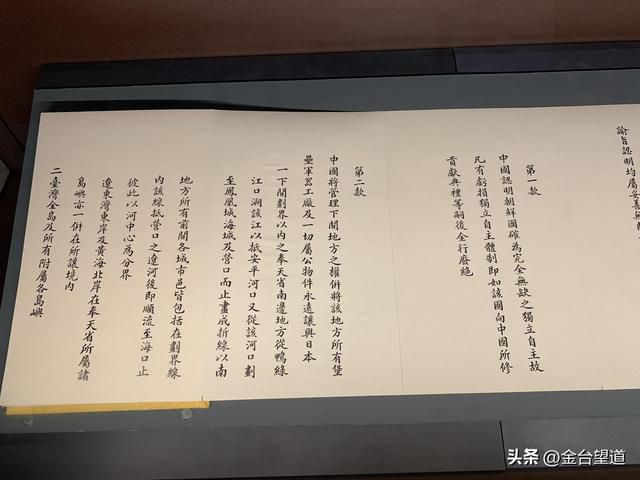 諭旨認明均屬妥善無
第一款
中國認明朝鮮國確為完全無缺之獨立自主故
凡有虧損獨立自主體制即如該國向中國所修
貢獻典禮等嗣後全行廢絕
第二款
中國將管理下開地方之權併將該地方所有堡
壘軍器工廠及一切屬公物件永遠讓與日本
一下開劃界以內之奉天省南邊地方從鴨綠
江口溯該江以抵安平河口又從該河口劃
至鳳凰城海城及營口而止畫成折線以南
地方所有前開各城市邑皆包括在劃界線
內該線抵營口之遼河後即順流至海口止
彼此以河中心為分界
遼東灣東岸及黃海北岸在奉天省所屬諸
島嶼亦一併在所讓境內
二臺灣全島及所有附屬各島嶼
头条 @金台望道